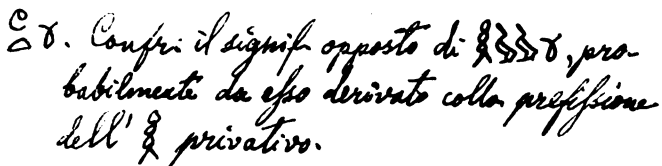 Confr: il signif. opposto di , pro-
babilmente da eſso derivato colla prefiſsione
dell' privativo.